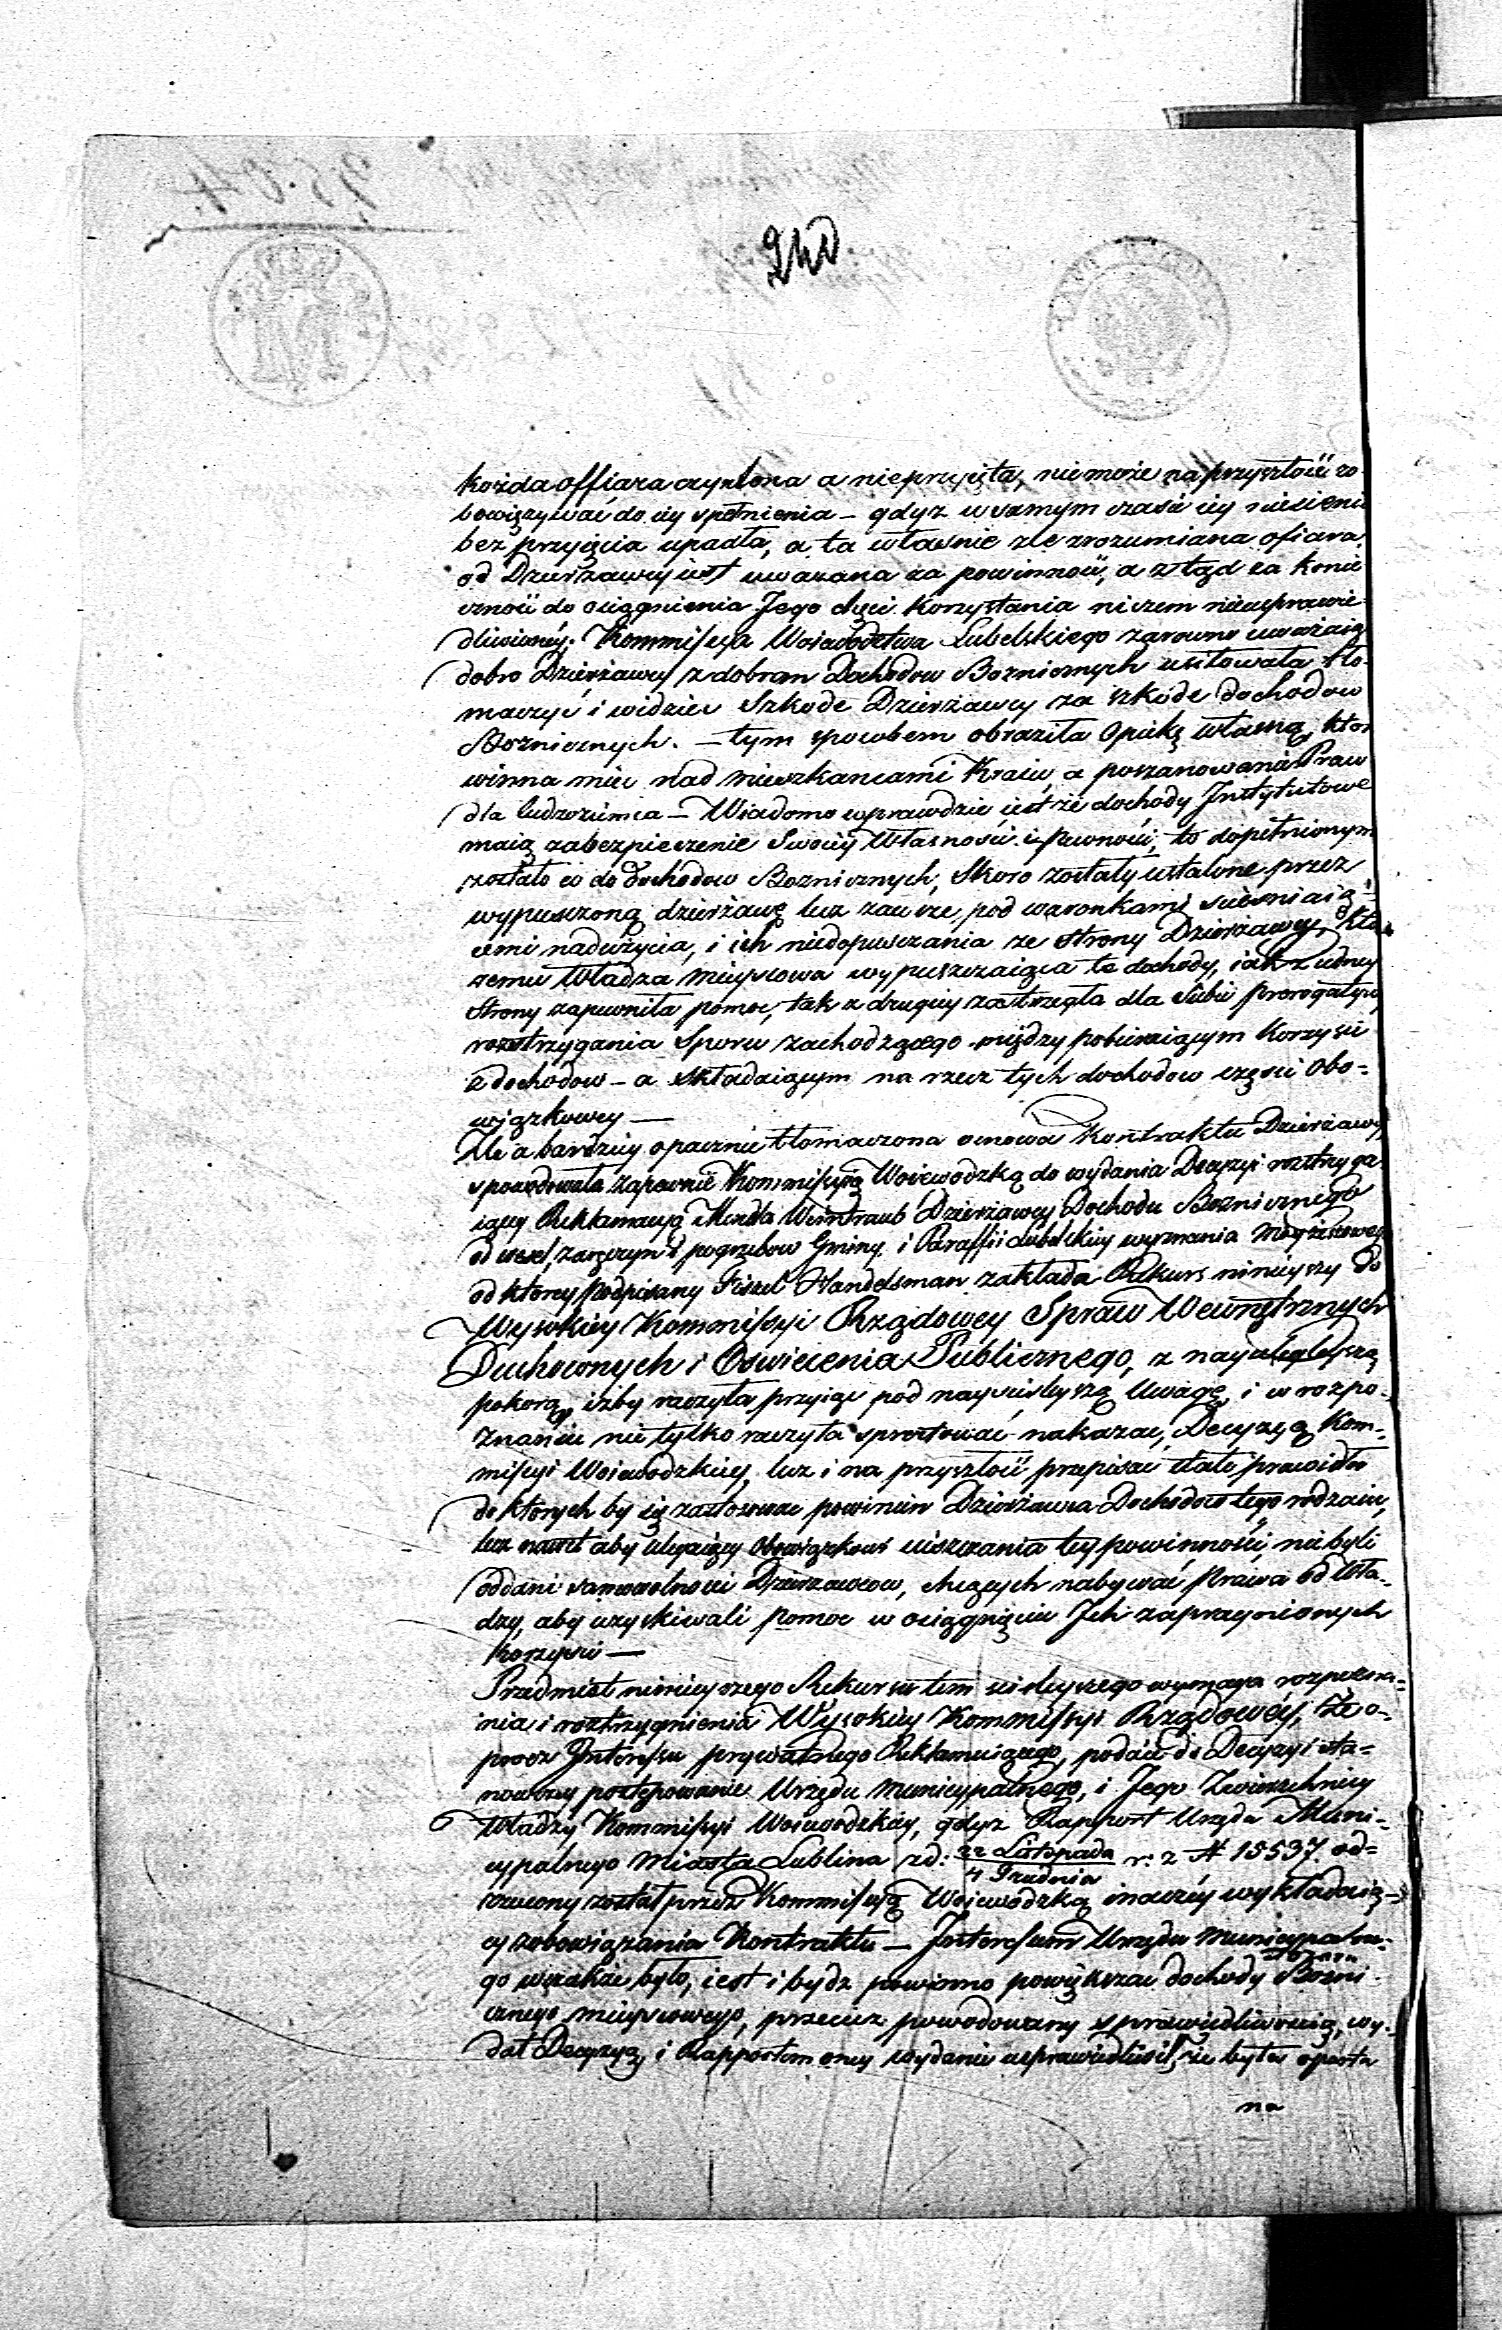 240
każda offiara czyniona a nieprzyięta, niemoże na przyszłość zo-
bowięzywać do iey spełnienia – gdyz w samym czasie iey niesienia
bez przyięcia upadła, a ta własnie zle zrozumiana ofiara
od Dzierżawcy iest uwazana za powinność, a ztąd za konie
czność do osiągnienia Jego chęci korzystania niczem nieusprawie-
dliwioney; Kommissya Woiewodztwa Lubelskiego zarowno uważaiąc
dobro Dzierżawcy z dobrem Dochodow Bozniczych usiłowała tło-
maczyć i widziec Szkode Dzierżawcy za szkode dochodow
Bozniczych. – tym sposobem obraziła Opiekę własną, ktor
winna miec nad mieszkancami Kraiu, a poszanowania Praw
dla cudzoziemca – Wiadomo wprawdzie iest że dochody Instytutowe
maią zabezpieczenie Swoiey Własnosci i pewnosci, to dopełnionym
zostało co do dochodow Boznicznych, Skoro zostały ustalone przez
wypuszczoną dzierżawę lecz zawsze pod warunkami scieśniaią-
cemi nadużycia, i ich niedopuszczania ze strony Dzierżawcy, kto-
remu Władza mieyscowa wypuszczaiąca te dochody, iak z iedney
Strony zapewniła pomoc, tak z drugiey zastrzegła dla Siebie prerogatywę
rozstrzygania Sporu zachodzącego między pobieraiącym korzysci
z dochodow – a składaiącym na rzecz tych dochodow części obo-
wiązkowey —
Zle a bardziey opacznie tłomaczona osnowa Kontraktu Dzierżawy
spowodowała zapewnie Kommissyią Woiewodzką do wydania Decyzyi roztrzyga-
iącey Reklamacyą Mendla Weintraub Dzierżawcy Dochodu Boznicznego
od wesel, zaręczyn i pogrzebow Gminy i Paraffii Lubelskiey wyznania Moyżeszowego
od ktorey podpisany Fiszel Handelsman zakłada Rekurs ninieyszy do
Wysokiey Kommissyi Rządowey Spraw Wewnętrznych
Duchownych i Oswiecenia Publicznego, z nayuległeyszą
pokorą, iżby raczyła przyiąc pod nayscisleyszą Uwagę, i w rozpo-
znaniu nie tylko raczyła sprostować nakazac, Decyzyą Kom-
missyi Woiewodzkiey, lecz i na przyszłość przepisać stałe prawidła
do ktorych by się zastosować powinien Dzierżawca Dochodow tego rodzaiu,
lecz nawet aby ulegaiący Obowiązkowi uiszczania tey powinności, nie byli
oddani samowolności Dzierzawcow, chcących nabywać Prawa od Wła-
dzy, aby uzyskiwali pomoc w osiągnięciu Ich zapragnionych
korzysci —
Przedmiot ninieyszego Rekursu tem scisleyszego wymaga rozpozna-
nia i roztrzygnienia Wysokiey Kommissyi Rządowéy, że o-
procz Interessu prywatnego Reklamuiącego, podaie do Decyzyi sta-
nowczey postępowanie Urzędu Municypalnego, i Jego Zwierzchniey
Władzy Kommissyi Woiewodzkiey, gdyz Rapport Urzędu Muni-
cypalnego Miasta Lublina zd: 22 Listopada / 4 Grudnia r: z N 15537 od-
rzucony został przez Kommissyą Woiewodzką inaczéy wykładaią-
cy zobowiązania Kontraktu – Interessem Urzędu Municypalne-
go wszakże było, iest i bydz powinno powiększac dochody Dozoru Bozni-
cznego mieyscowego, przeciez powodowany sprawiedliwością, wy-
dał Decyzyą, i Rapportem oney wydanie usprawiedliwił, że była oparta
na